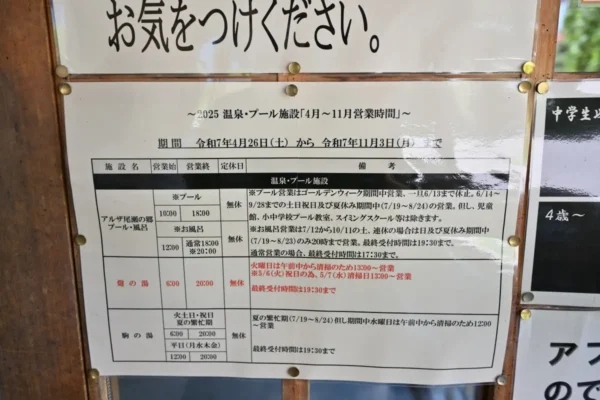 お気をつけください。
～2025 温泉・プール施設「4月～11月営業時間」～
期間 令和7年4月26日(土) から 令和7年11月3日(月) まで
施設名 営業始 営業終 定休日 備考
温泉・プール施設
アルザ尾瀬の郷
プール・風呂
※プール
10:00 18:00
無休
※プール営業はゴールデンウィーク期間中営業、一旦6/13まで休止。6/14～
9/28までの土日祝日及び夏休み期間中(7/19～8/24)の営業。但し、児童
館、小中学校プール教室、スイミングスクール等は除きます。
※お風呂
12:00 通常18:00
※20:00
無休
※お風呂営業は7/12から10/11の土、連休の場合は日及び夏休み期間中
(7/19～8/23)のみ20時まで営業。最終受付時間は19:30まで
通常営業の場合、最終受付時間は17:30まで。
の湯
6:00 20:00
無休
火曜日は午前中から清掃のため13:00～営業
※5/6(火)祝日の為、5/7(水)清掃日13:00～営業
最終受付時間は19:30まで
駒の湯
火土日・祝日
夏の繁忙期
6:00 20:00
平日(月水木金)
12:00 20:00
無休
夏の繁忙期(7/19～8/24)但し期間中水曜日は午前中から清掃のため12:00
～営業
最終受付時間は19:30まで
中学生
4歳～
アフ
ので